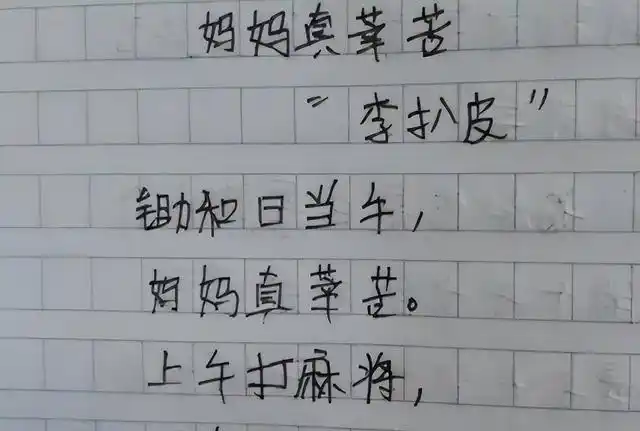 妈妈真辛苦
“李扒皮”
锄和日当午,
妈妈真辛苦。
上午打麻将,